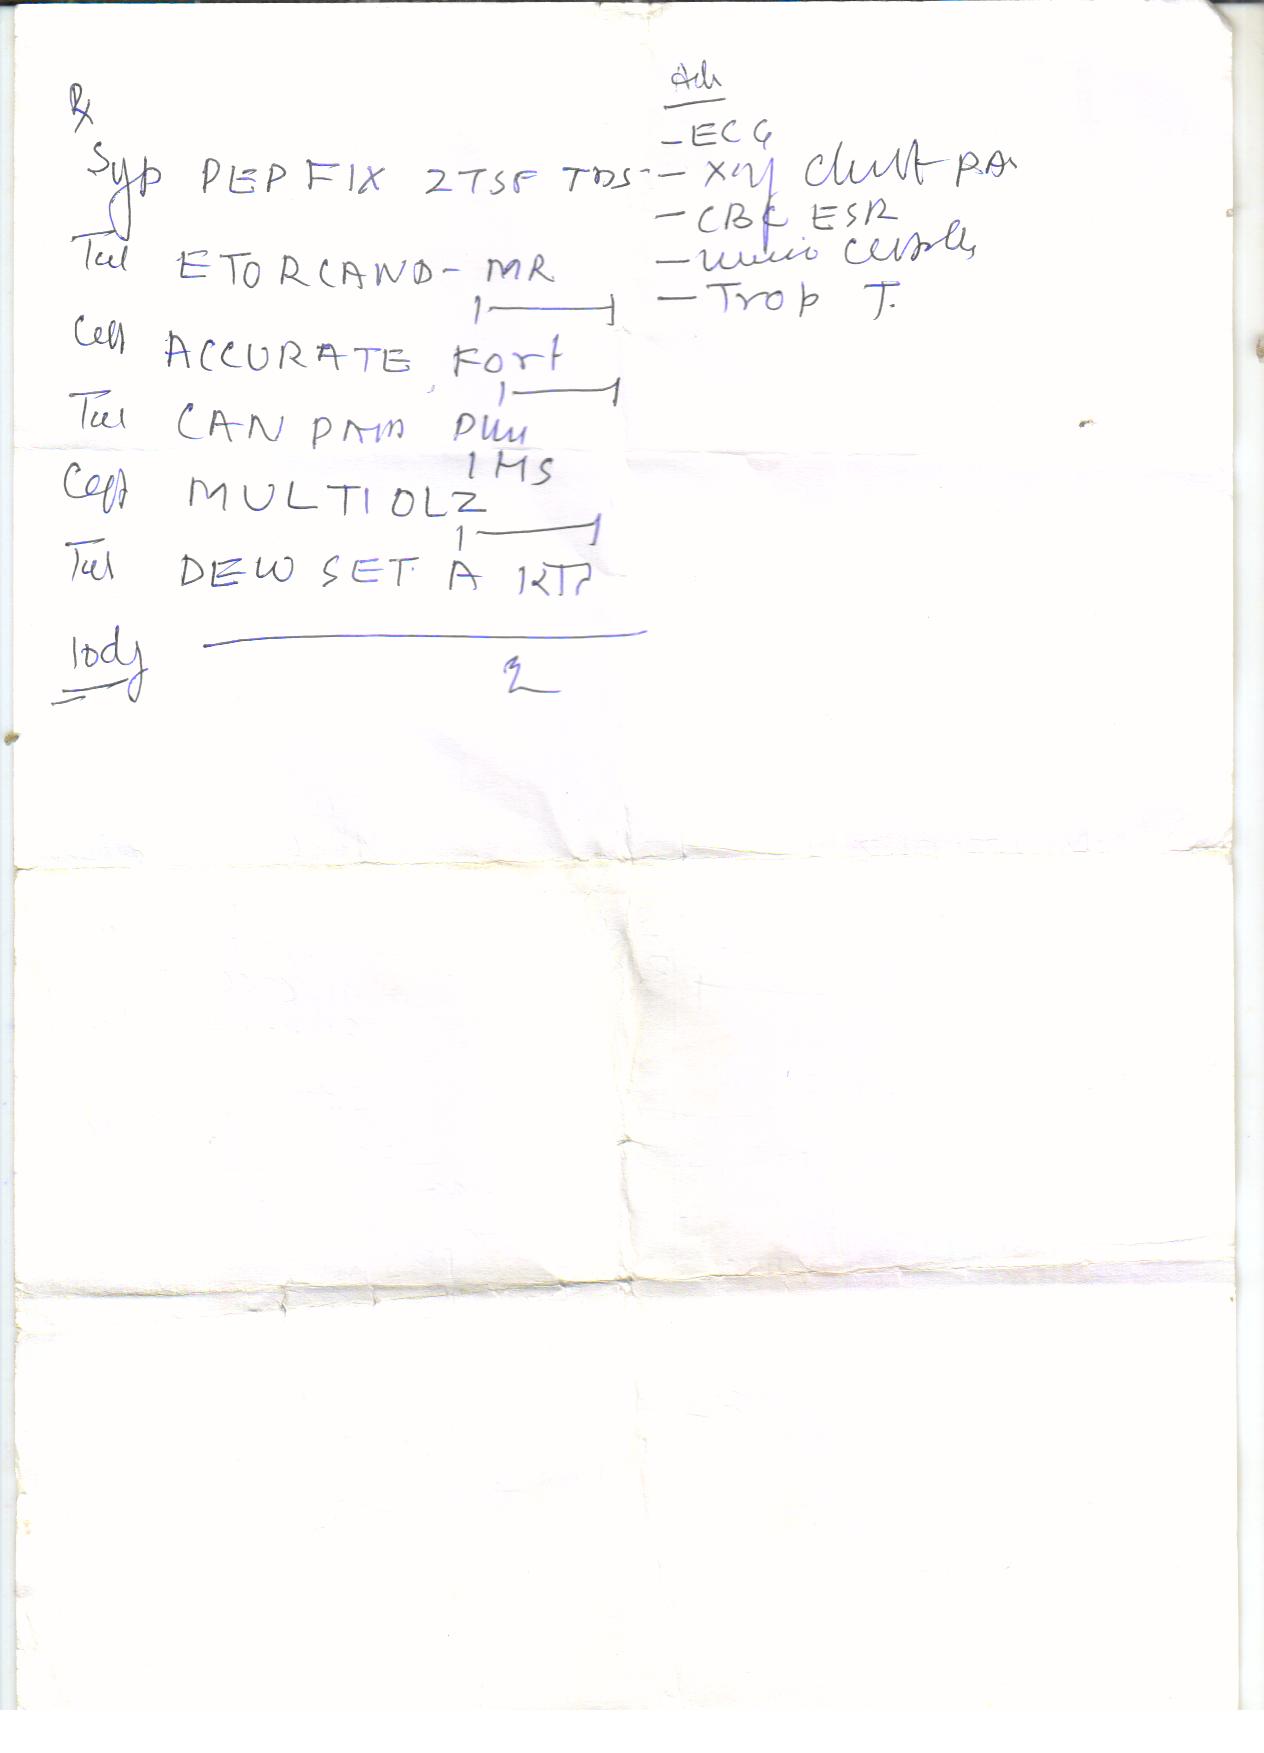 Rx
Syp PEPFIX 2TSF TDS
Tab ETORCAND-MR
1 1
Cap ACCURATE Fort
1 1
Tab CAN PAM
1 HS
Cap MULTIOLZ
1 1
Tab DEW SET A
10dj
2
Adv
- ECG
- Xray chest PA
- CBC ESR
-
- Trop T.